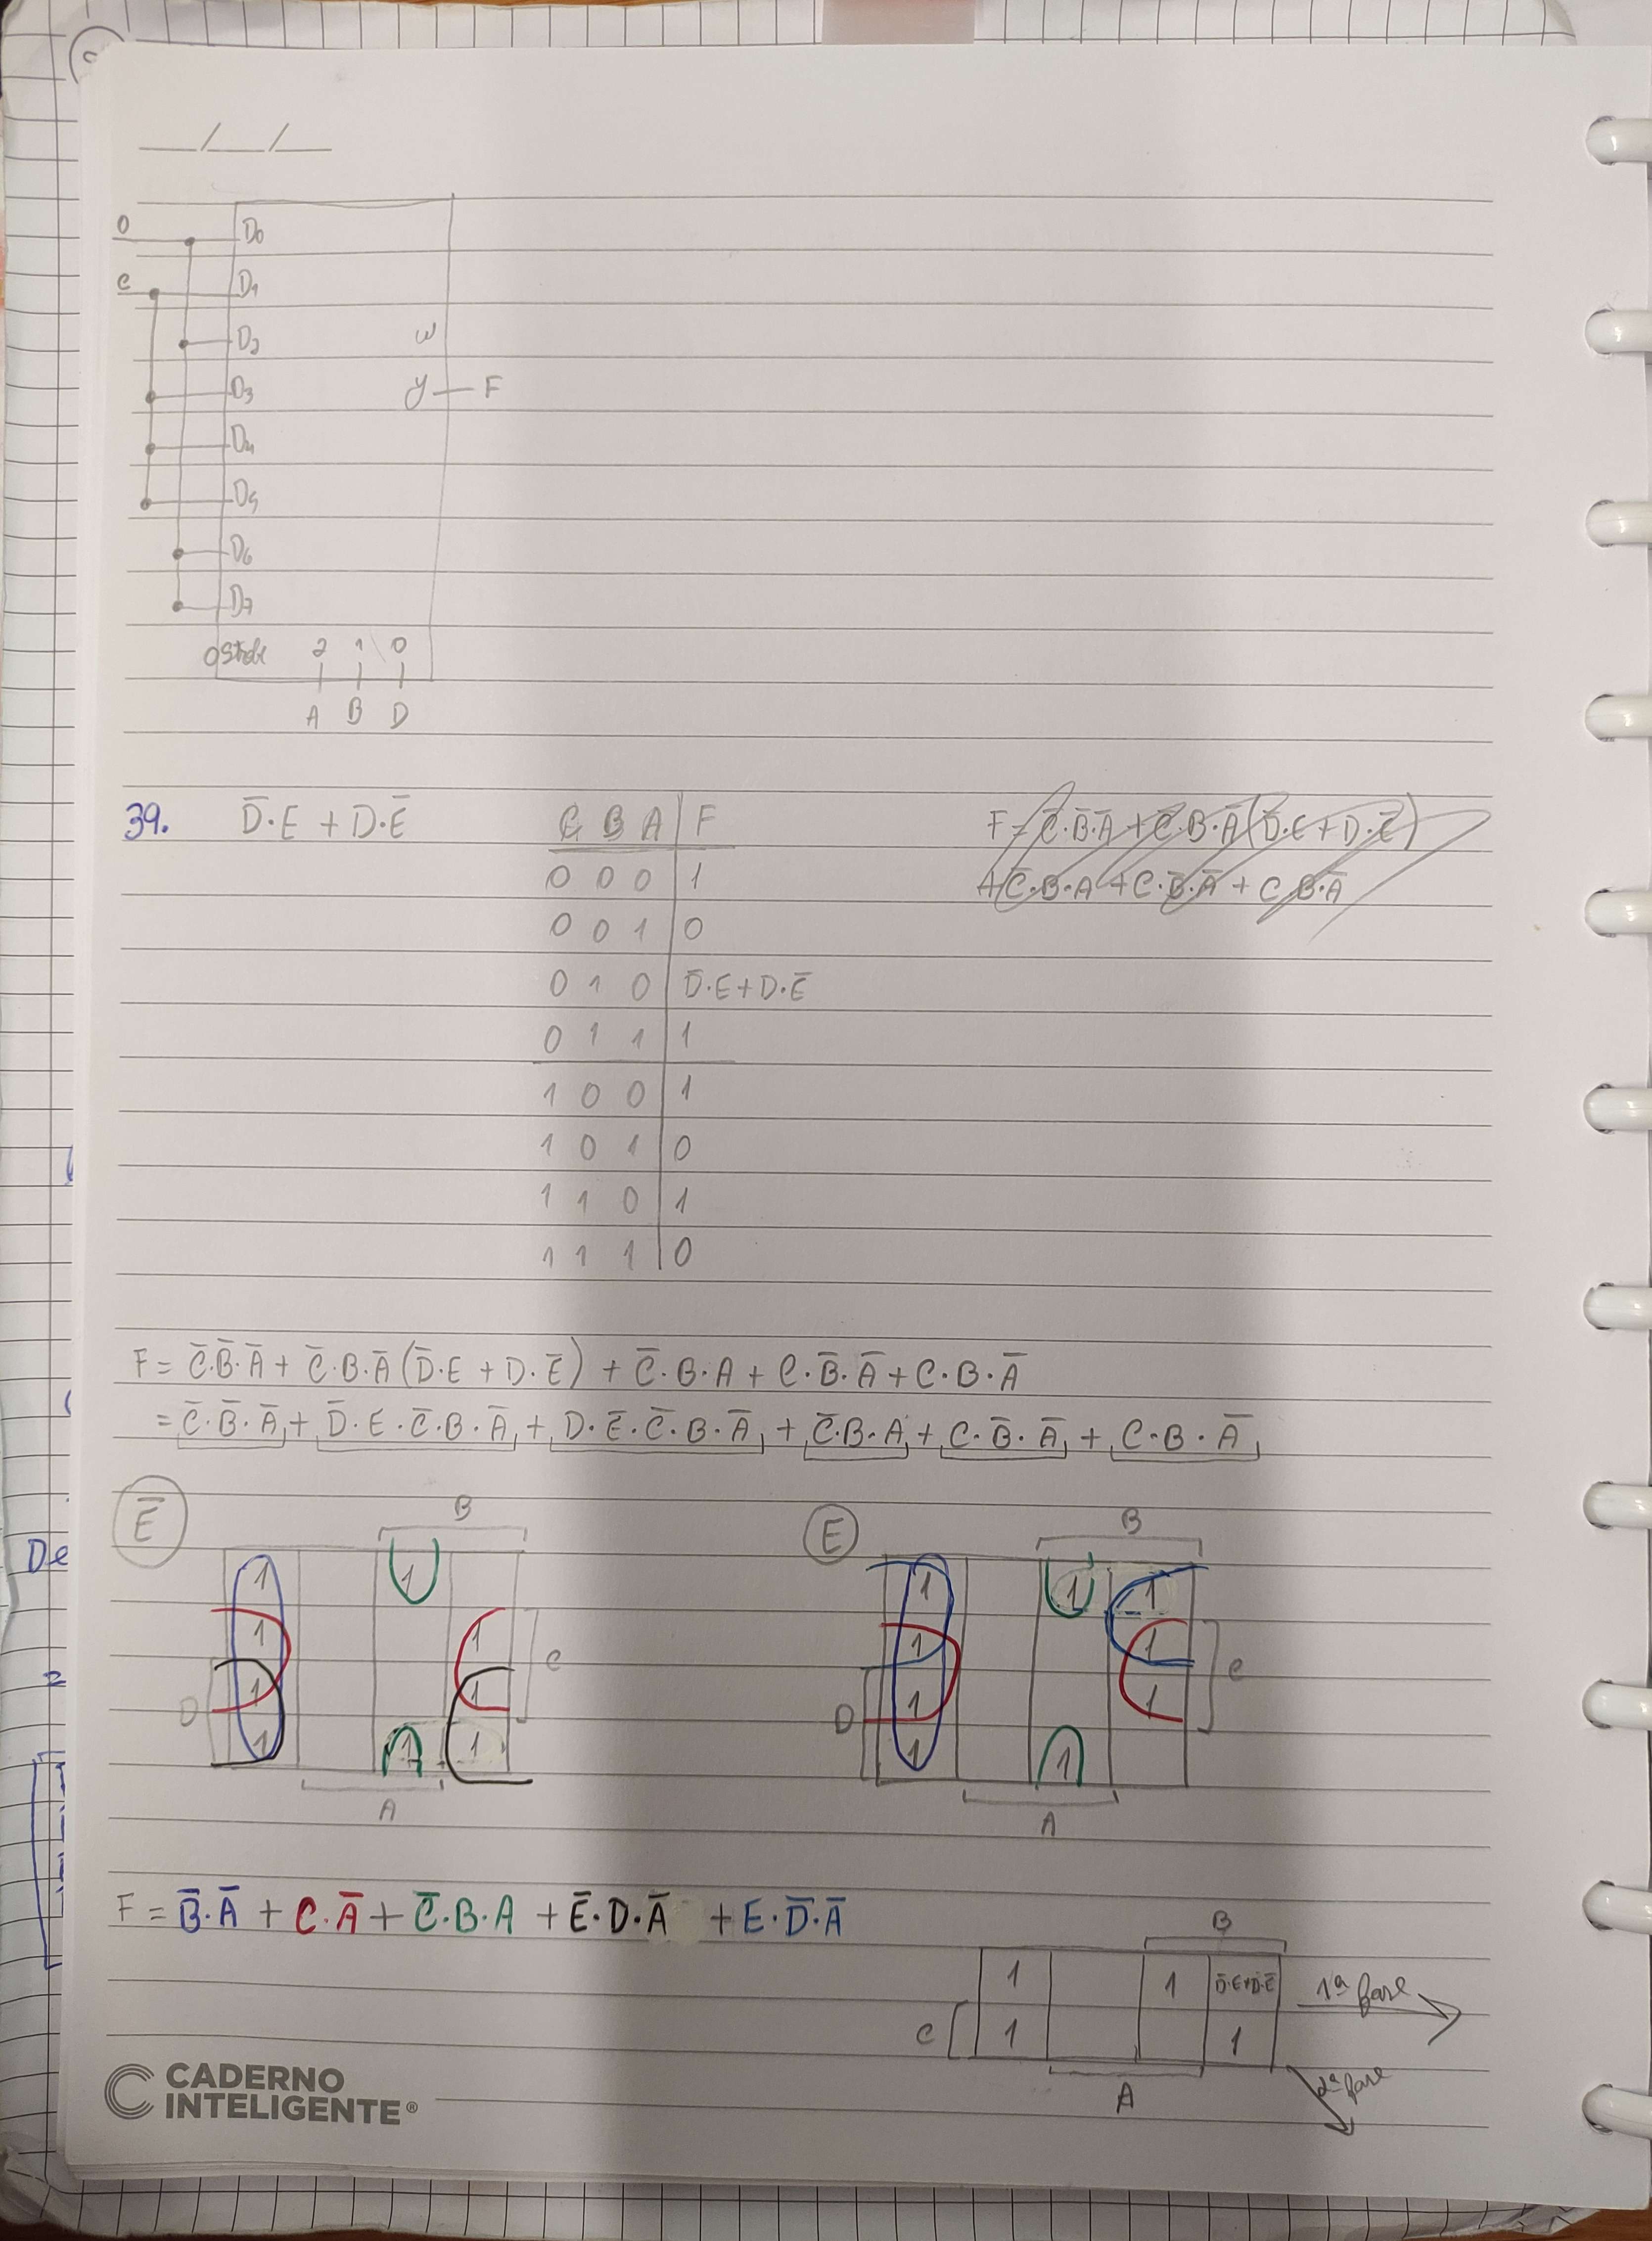 __/__/__
0 D0
C D1
D2 W
D3 y F
D4
D5
D6
D7
0 Strobe 2 1 0
A B D
39. D̅·E + D·E̅
C B A | F
0 0 0 | 1
0 0 1 | 0
0 1 0 | D̅·E + D·E̅
0 1 1 | 1
1 0 0 | 1
1 0 1 | 0
1 1 0 | 1
1 1 1 | 0
F = C̅·B̅·A̅ + C̅·B·A̅ (D̅·E + D·E̅)
+ C̅·B·A + C·B̅·A̅ + C·B·A̅
F = C̅·B̅·A̅ + C̅·B·A̅ (D̅·E + D·E̅) + C̅·B·A + C·B̅·A̅ + C·B·A̅
= C̅·B̅·A̅ + D̅·E·C̅·B·A̅ + D·E̅·C̅·B·A̅ + C̅·B·A + C·B̅·A̅ + C·B·A̅
E̅ B
1 1
1 1 C
D 1 1
1 1 1
A
E B
1 1 1
1 1 C
D 1 1
1 1
A
F = B̅·A̅ + C·A̅ + C̅·B·A + E̅·D·A̅ + E·D̅·A̅
B
1 1 D̅·E+D·E̅ 1ª fase
C 1 1
A 2ª fase
De
CADERNO
INTELIGENTE®